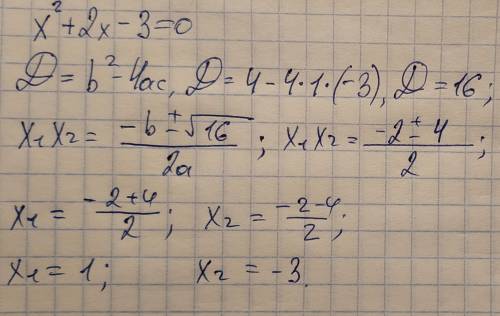 x² + 2x - 3 = 0
D = b² - 4ac, D = 4 - 4·1·(-3), D = 16;
x₁ x₂ = (-b ± √16)/(2a); x₁ x₂ = (-2 ± 4)/2;
x₁ = (-2+4)/2; x₂ = (-2-4)/2;
x₁ = 1; x₂ = -3.